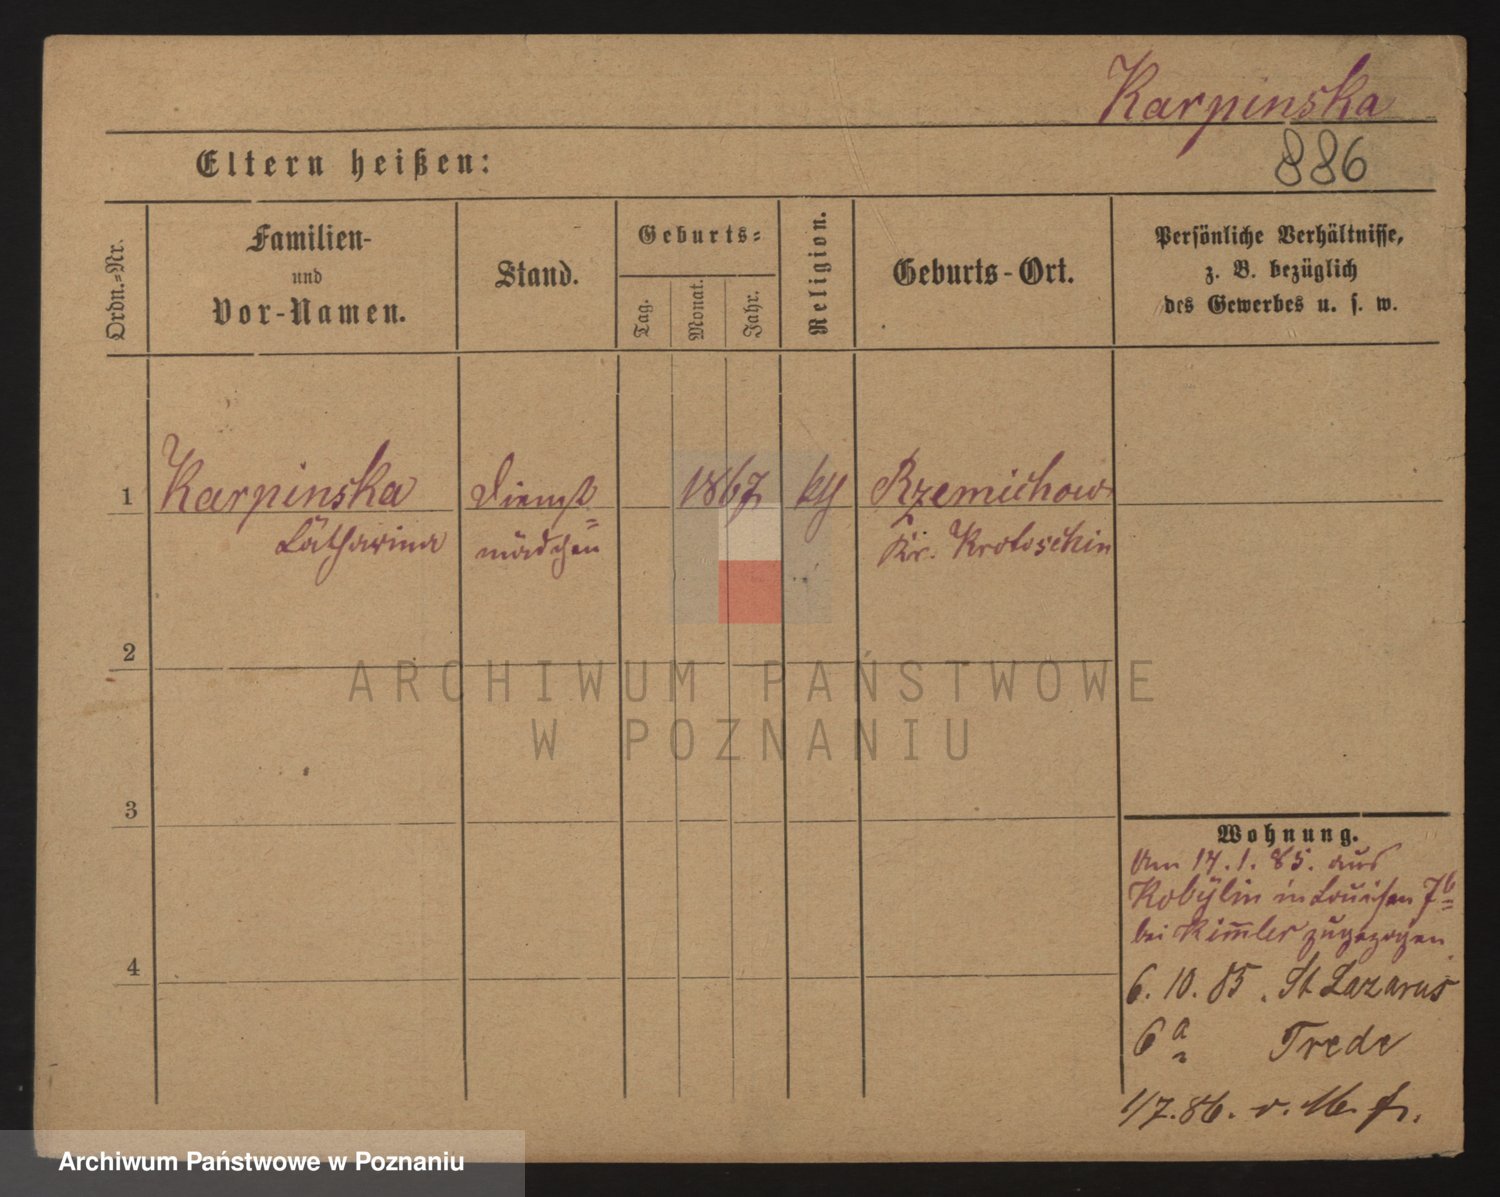 Karpinska
886
Eltern heißen:
Ordn.-Nr.
Familien-
und
Vor-Namen.
Stand.
Geburts-
Tag.
Monat.
Jahr.
Religion.
Geburts-Ort.
Persönliche Verhältnisse,
z. B. bezüglich
des Gewerbes u. s. w.
1
Karpinska
Catharina
Dienst=
mädchen
1867
kth
Rzemichow
Kr. Krotoschin
2
3
4
Wohnung.
Am 17.1.85. aus
Kobylin in Louisen 7b
bei Kimler zugezogen
6.10.85. St Lazarus
6a Trede
1/7.86. v.
ARCHIWUM PAŃSTWOWE
W POZNANIU
Archiwum Państwowe w Poznaniu